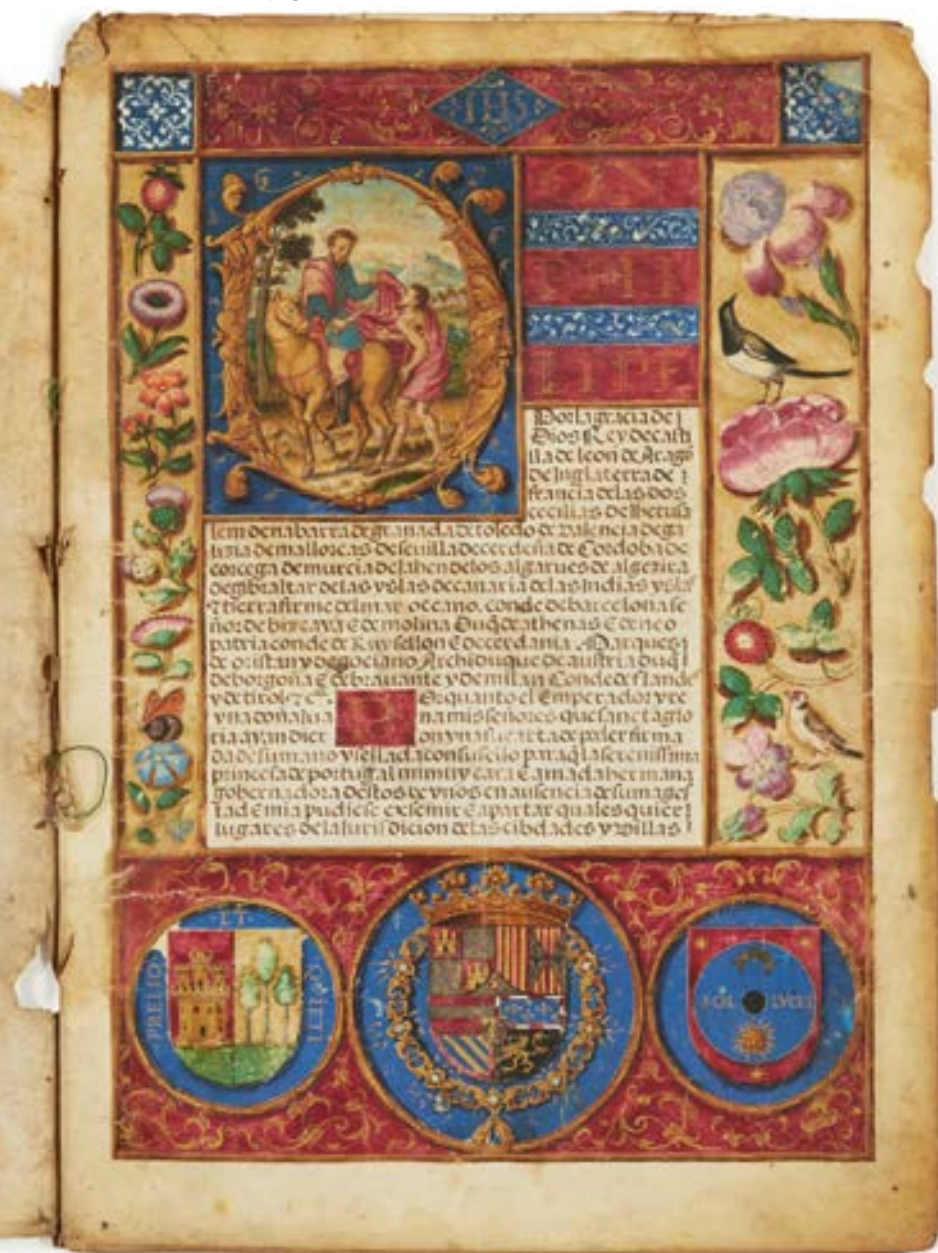 IHS
DON
PHE
LIPE
Por la gracia de
Dios Rey de casti
lla de leon de Arago
de Inglaterra de
francia de las dos
cecilias de Iherusa
lem de nabarra de granada de toledo de valencia de ga
lizia de mallorcas de seuilla de cerdeña de Cordoba de
corcega de murcia de Jahen de los algarues de algezira
de gibraltar de las yslas de canaria de las Indias yslas
tierra firme del mar occeano. conde de barcelona se
ñor de bizcaya E de molina Duq de athenas E de neo
patria conde de Ruysellon E de cerdania Marques
de oristan y de gociano Archiduque de austria duq
de borgoña E de brauante y de milan Conde de flandes
y de tirol &c. Porquanto el Emperador y re
yna doña Jua na mis señores que sancta glo
ria ayan dier on vna su carta de poder firma
da de su mano y sellada con su sello para q la serenissima
princesa de portugal mi muy cara E amada hermana
gobernadora destos reynos en ausencia de su mages
tad E mia pudiese exsemir E apartar quales quier
lugares de la Jurisdicion de las cibdades y villas
PRELIO ET QVIETI
SOL LVCET